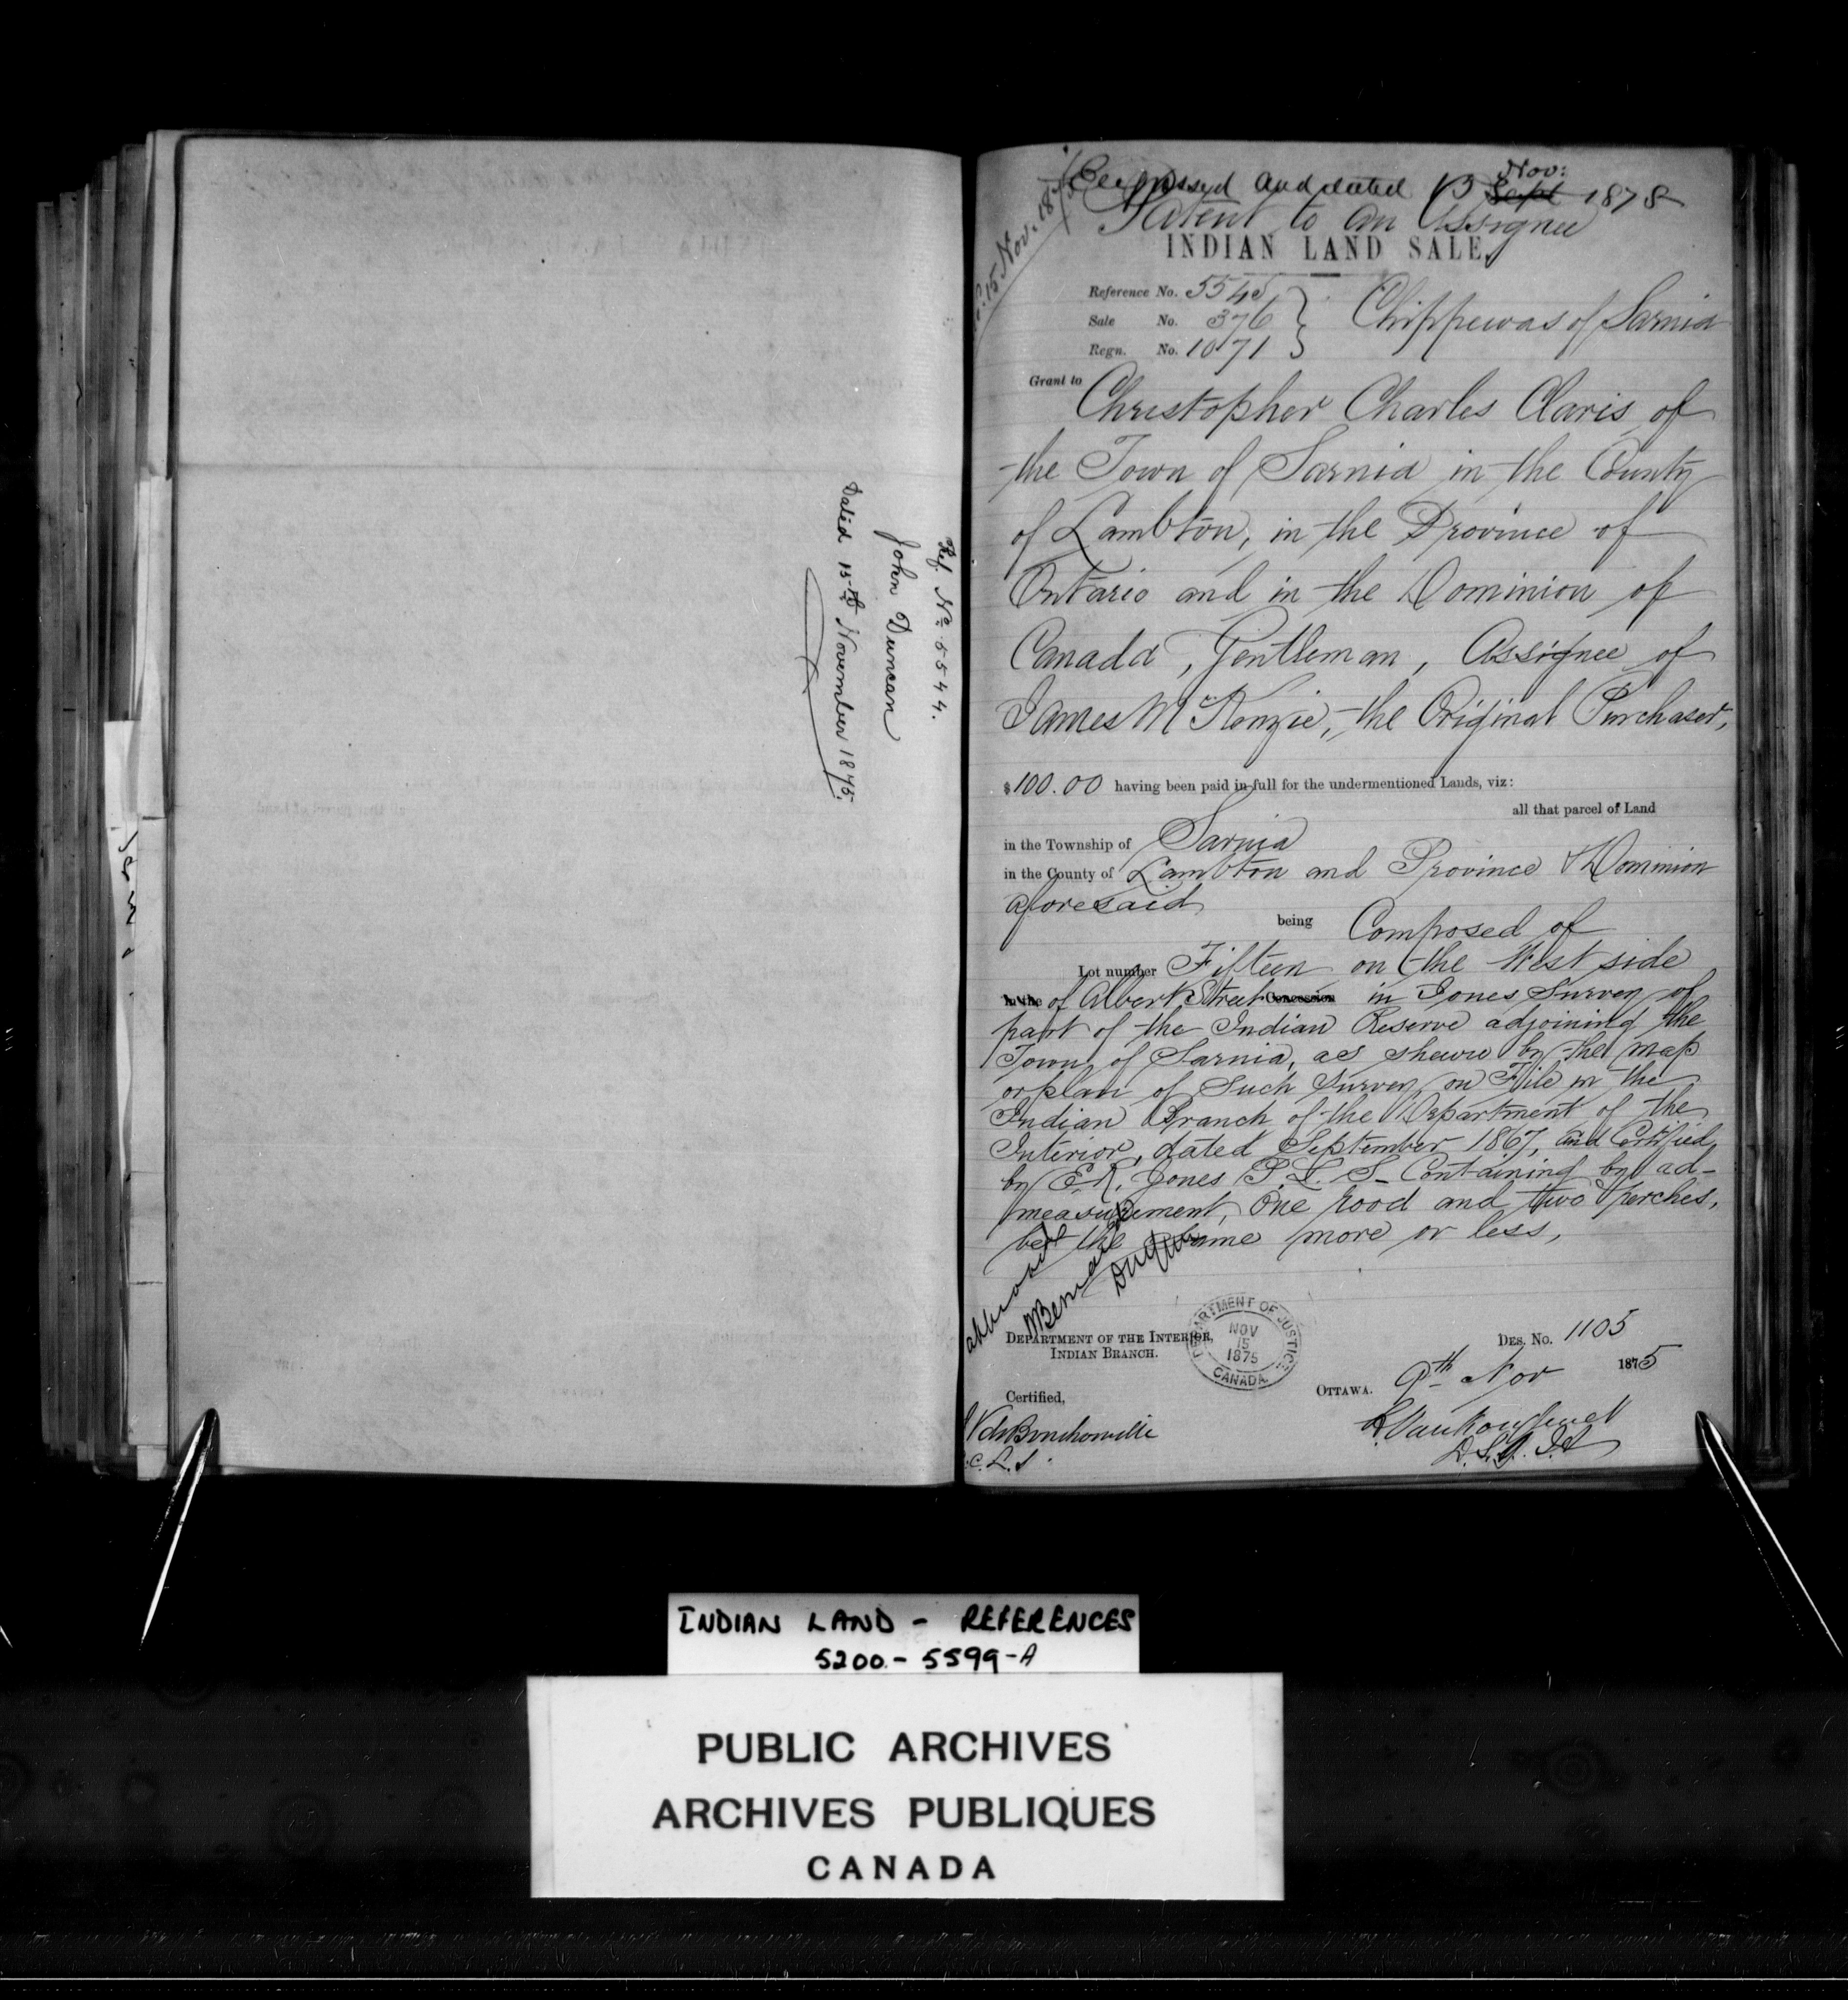 Ref. No. 5544.
John Duncan
Dated 15th November 1875.
Engrossed and dated 15 Sept Nov: 1875
Patent to an Assignee
15 Nov. 187
INDIAN LAND SALE,
Reference No. 5545
Sale No. 376
Regn. No. 1071
Chippewas of Sarnia
Grant to
Christopher Charles Claris of
the Town of Sarnia in the County
of Lambton, in the Province of
Ontario and in the Dominion of
Canada, Gentleman, Assignee of
James McKenzie, the Original Purchaser,
$100.00 having been paid in full for the undermentioned Lands, viz:
all that parcel of Land
in the Township of Sarnia
in the County of Lambton and Province & Dominion
aforesaid
being Composed of
Lot number Fifteen on the West side
in the of Albert Street Concession in Jones Survey of
part of the Indian Reserve adjoining the
Town of Sarnia, as shewn by the map
or plan of Such Survey on File in the
Indian Branch of the Department of the
Interior, dated September 1867, and Certified
by E.R. Jones P.L.S. Containing by ad-
measurement, One rood and two perches,
be the same more or less,
DEPARTMENT OF THE INTERIOR,
INDIAN BRANCH.
DEPARTMENT OF JUSTICE
NOV
15
1875
CANADA
DES. No. 1105
OTTAWA. 9th Nov 1875
Certified,
de Boucherville
C.L.S.
L. Vankoughnet
D.S.G.I.A
INDIAN LAND - REFERENCES
5200 - 5599-A
PUBLIC ARCHIVES
ARCHIVES PUBLIQUES
CANADA